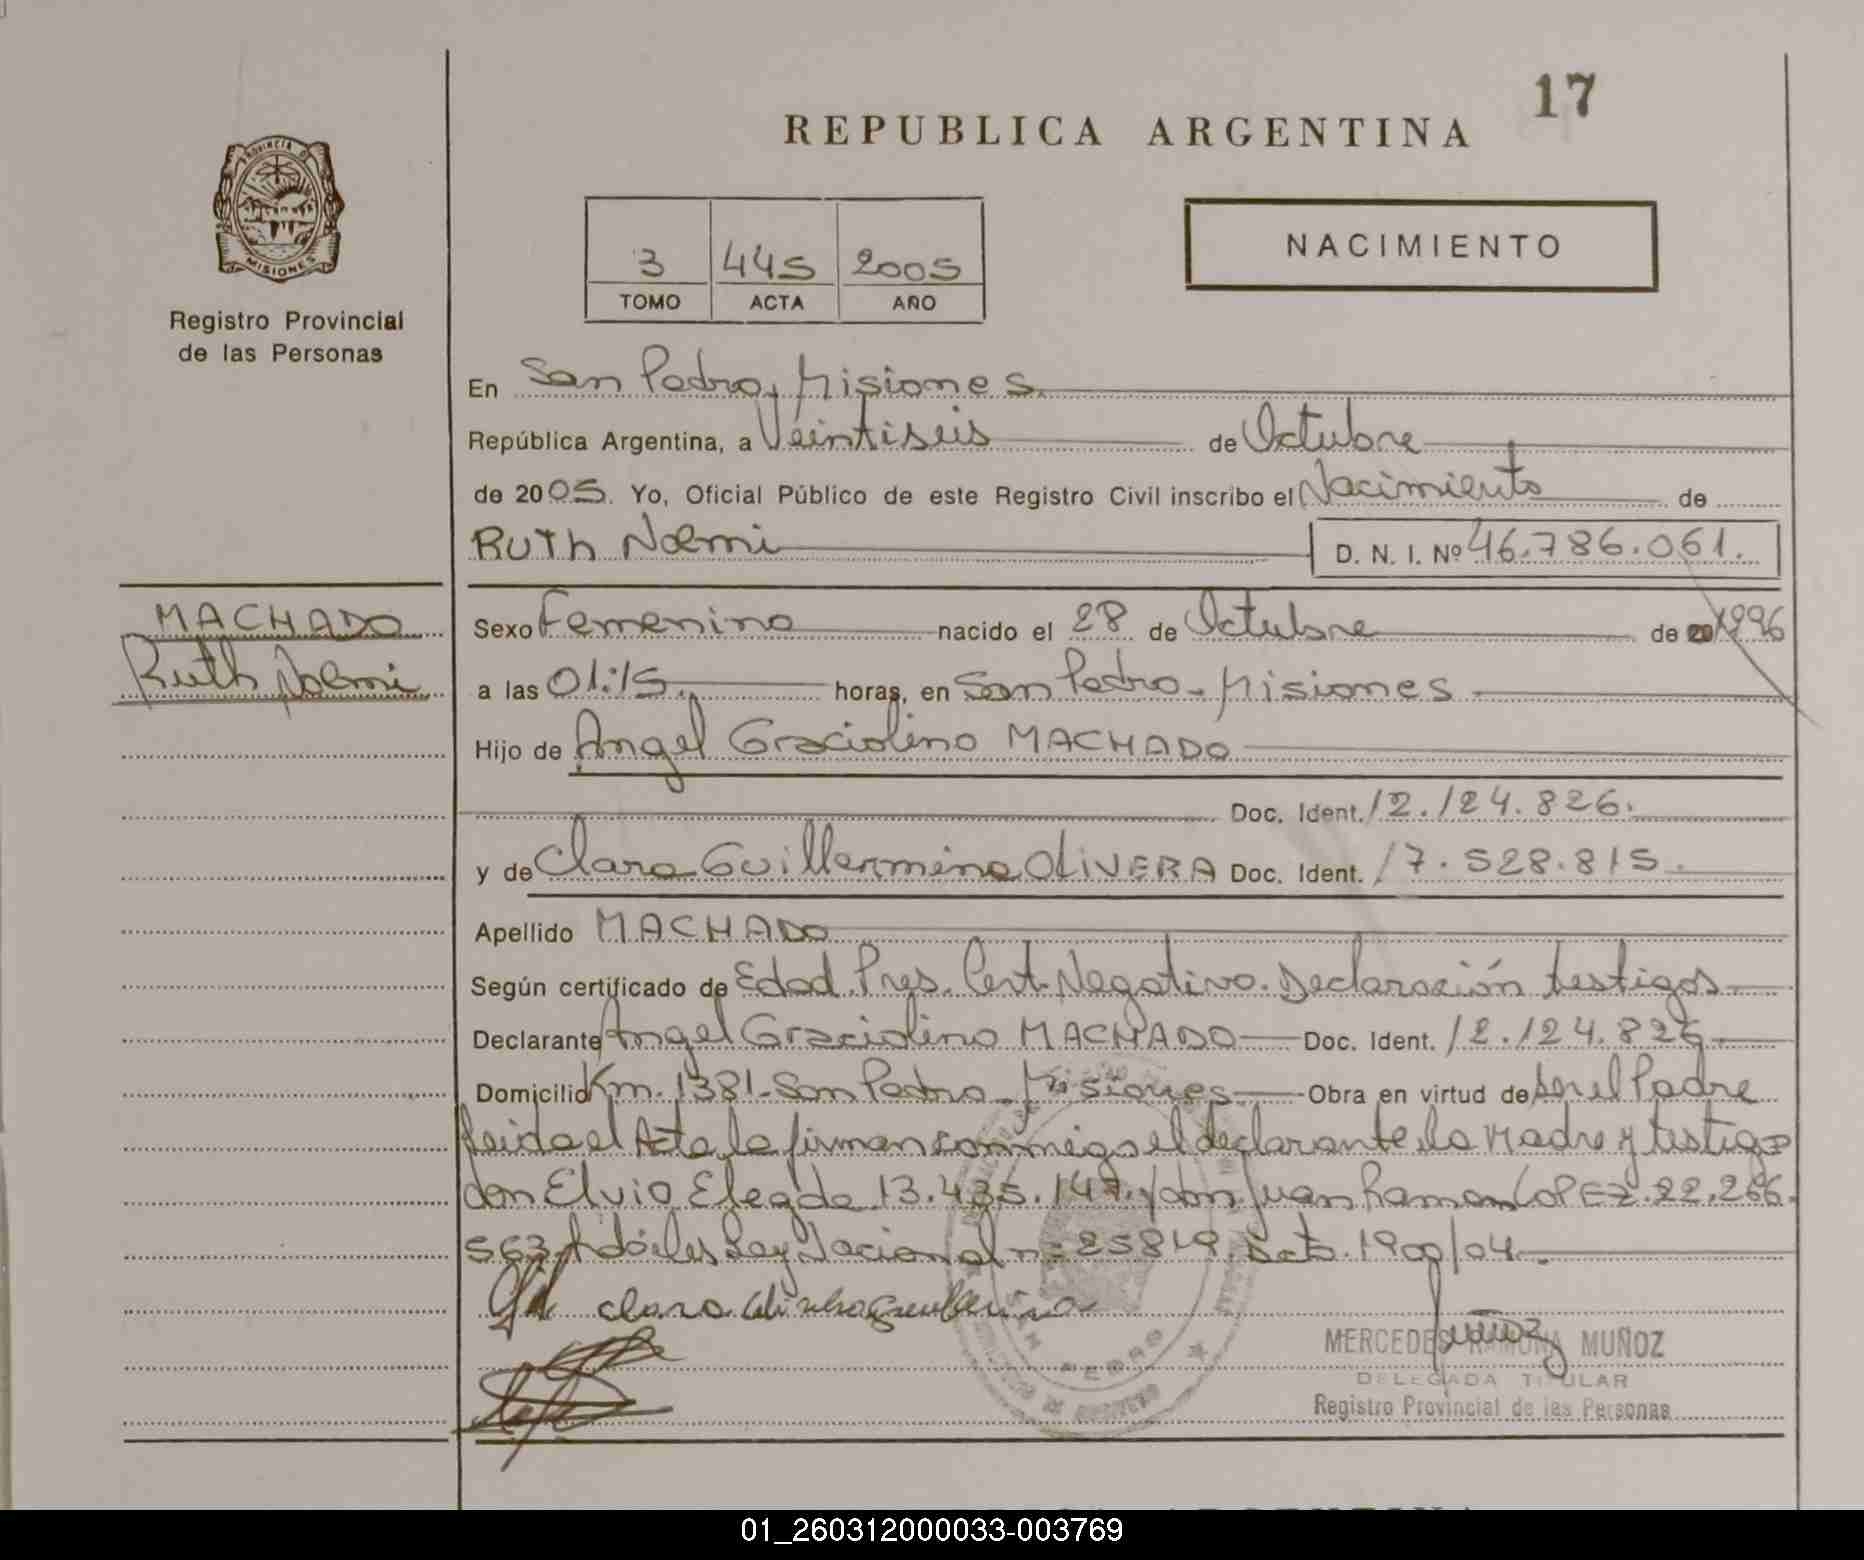 17
REPUBLICA ARGENTINA
PROVINCIA D
MISIONES
Registro Provincial
de las Personas
3 445 2005
TOMO ACTA AÑO
NACIMIENTO
En San Pedro, Misiones.
República Argentina, a Veintiseis de Octubre
de 2005. Yo, Oficial Público de este Registro Civil inscribo el Nacimiento de
RUTh Noemi D. N. I. Nº 46.786.061.
MACHADO
Ruth Noemi
Sexo Femenino nacido el 28 de Octubre de 20 1996
a las 01:15 horas, en San Pedro - Misiones
Hijo de Angel Graciolino MACHADO
Doc. Ident. 12.124.826.
y de Clara Guillermina OLIVERA Doc. Ident. 17.528.815.
Apellido MACHADO
Según certificado de Edad. Pres. Cert. Negativo. Declaración testigos
Declarante Angel Graciolino MACHADO Doc. Ident. 12.124.826
Domicilio Km. 1381 - San Pedro - Misiones Obra en virtud de ser el Padre
Leida el Acta, la firman conmigo el declarante, la Madre y testigos
don Elvio Elegda 13.435.147. y don Juan Ramon LOPEZ. 22.266.
563 Ley Nacional nº 25819. Dcto. 1900/04.
Clara
SAN PEDRO
MERCEDES RAMONA MUÑOZ
DELEGADA TITULAR
Registro Provincial de las Personas
01_260312000033-003769